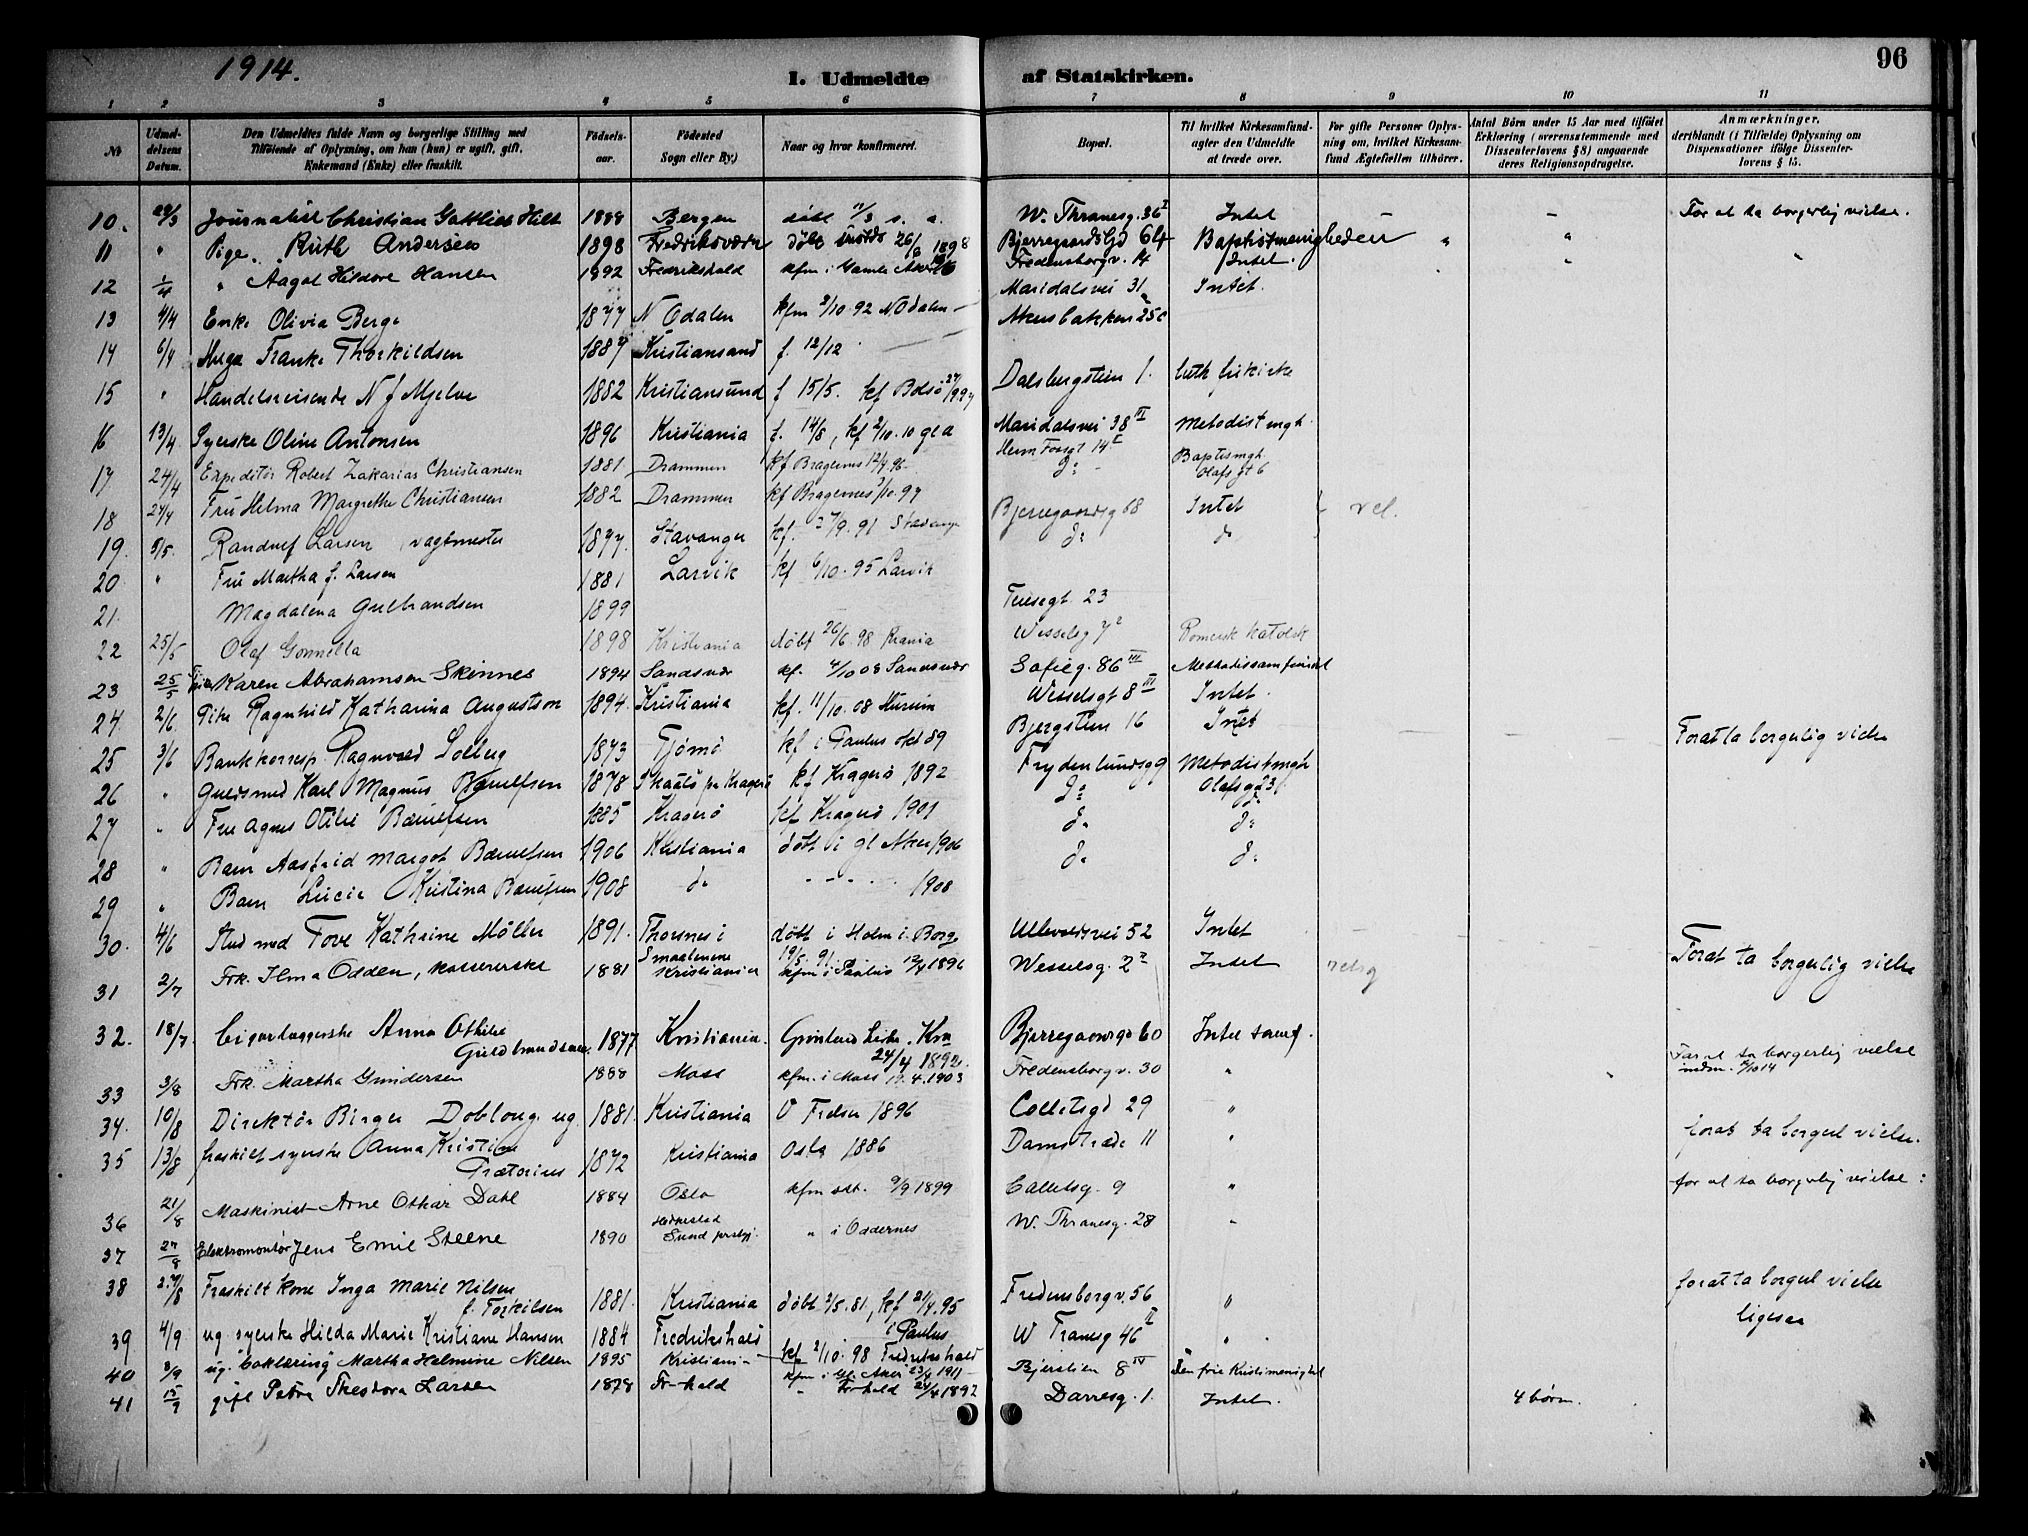 1914.
I. Udmeldte af Statskirken.
96
1 2 3 4 5 6 7 8 9 10 11
No
Udmel-
delsens
Datum.
Den Udmeldtes fulde Navn og borgerlige Stilling med
Tilføiende af Oplysning, om han (hun) er ugift, gift,
Enkemand (Enke) eller fraskilt.
Fødsels-
aar.
Fødested
Sogn eller By.)
Naar og hvor konfirmeret.
Bopæl.
Til hvilket Kirkesamfund-
agter den Udmeldte
at træde over.
For gifte Personer Oplys-
ning om, hvilket Kirkesam-
fund Ægtefællen tilhører.
Antal Børn under 15 Aar med tilføiet
Erklæring (overensstemmende med
Dissenterlovens § 8) angaaende
deres Religionsopdragelse.
Anmærkninger.
deriblandt (i Tilfælde) Oplysning om
Dispensationer ifølge Dissenter-
lovens § 15.
10. Journalist Christian Gottlieb Hilt 1888 Bergen døbt 11/3 s. a. W. Thranesg. 36 I Intet - - For at ta borgerlig vielse.
11 " Pige Ruth Andersen 1898 Fredriksværn døbt 26/6 1898 Bjerregaardsgd 64 Baptistmenigheden " "
12 1/4 " Aagot Hildore Hansen 1892 Fredrikshald kfm i Gamle Aker Fredensborgv. 14 Intet. " "
Maridalsvei 31 Intet.
13 4/4 Enke Olivia Berge 1877 N Odalen kfm 2/10 92 N Odalen - Akersbakken 25 c
14 6/4 Franke Thorkildsen 1887 Kristiansand f. 12/12
15 " Handelsreisende N J Mjelve 1882 Kristiansund f 15/5. kf Bolsø Dalsbergstien 1. luth frikirke
16 13/4 Syerske Oline Antonsen 1896 Kristiania f. 14/8, kf 2/10.10 gl a Maridalsvei 38 III Metodistmgh.
17 24/4 Expeditør Robert Zakarias Christiansen 1881 Drammen kf Bragernes 12/4 96 Herm Fossgt 14 I Baptismgh.
Olafsgt 6
18 24/4 Fru Helma Margrethe Christiansen 1882 Drammen kf Bragernes /10.97 do -
19. 5/5. Randulf Larsen vagtmester 1877. Stavanger kf. 27/9. 91 Stavanger Bjerregaardsg 68 Intet vel.
20 " Fru Martha f. Larsen 1881 Larvik kf 6/10. 95 Larvik do do
21. Magdalena Gulbrandsen 1899 23
22 25/5 Olaf Gonnella 1898 Kristiania døbt 26/6 98 Krania Wesselsg 7 2 Romersk katolsk
23 25/5 Karen Abrahamsen Skinnes 1894 Sandsvær kf. 4/10 08 Sandsvær Sofieg. 86 III Metodissamfundet
24. 2/6 Pike Ragnhild Katharina Augustson 1894. Kristiania kf. 11/10. 08 Hurum Wesselsgt 8 III Intet.
25 3/6 Bankkorresp. Ragnvald Solberg 1873 Tjømø kf i Paulus okt 89 Bjergstien 16 Intet For at ta borgerlig vielse
26 " Guldsmed Karl Magnus Børulfsen 1878 Skaatø pr Kragerø kf Kragerø 1892 Frydenlundsg 9 Metodistmgh
Olafsgd 31
27 " Fru Agnes Otilie Børulfsen 1885 Kragerø kf Kragerø 1901 do do
28 " Barn Aasfrid Margot Børulfsen 1906 Kristiania døbt i gl Aker 1906 do do
29 " Barn Lucie Kristina Børulfsen 1908 do - - - 1908 do do
30. 4/6 Stud med Tove Kathrine Møller 1891. Thorsnes i døbt i Holm i Borge Ullevoldsvei 52 Intet
Smaalenene 19/5. 91.
31 2/7 Frk. Ilma Odden, kassererske 1881 Kristiania kfm i Paulus 12/4 1896 Wesselsg. 2 Intet For at ta borgerlig vielse
32. 18/7. Cigarlæggerske Anna Othilie
Guldbrandsen 1877 Kristiania. Grønland kirke. Kra
24/4 1892. Bjerregaardsgd 60 Intet samf.
33 3/8 Frk. Martha Gundersen 1888 Moss kfm. i Moss 12.4.1903 Fredensborgv. 30 " For at ta borgerlig vielse
34. 10/8 Direktør Birger Doblong. ug. 1881. Kristiania V Frelser 1896 Colletsgd 29 " forat ta borgerl vielse.
35 13/8 fraskilt syerske Anna Kristine
Prætorius 1872 Kristiania Oslo 1886 Damstræde 11 "
36 21/8 Maskinist Arne Othar Dahl 1884 Oslo kfm sst. 9/9 1899 Colletsg. 9 " for at ta borgerlig vielse:
37 27/8 Elektromontør Jens Emil Steene 1890 Sund prstgj. " i Oddernes W. Thranesg. 28 "
38 27/8 Fraskilt kone Inga Marie Nilsen
f. Torkilsen 1881. Kristiania døbt 2/5. 81, kf 21/4. 95
i Paulus Fredensborgv. 56 " forat ta borgerl vielse
39 4/9 ug syerske Hilda Marie Kristiane Hansen 1884 Fredrikshald kf 2/10. 98 Fredrikshald W Tranesg 46 II " ligesaa
40 8/9 ug. "boklæring" Martha Helmine Nilsen 1895 Kristiania kfm i Gl. Aker 23/4 1911 Bjerstien 8 IV Den frie Kristimenighet
41 15/9 gift Petra Theodora Larsen 1878 Fr-hald " Fr-hald 24/4 1892 Darresg. 1. Intet. 4 børn.